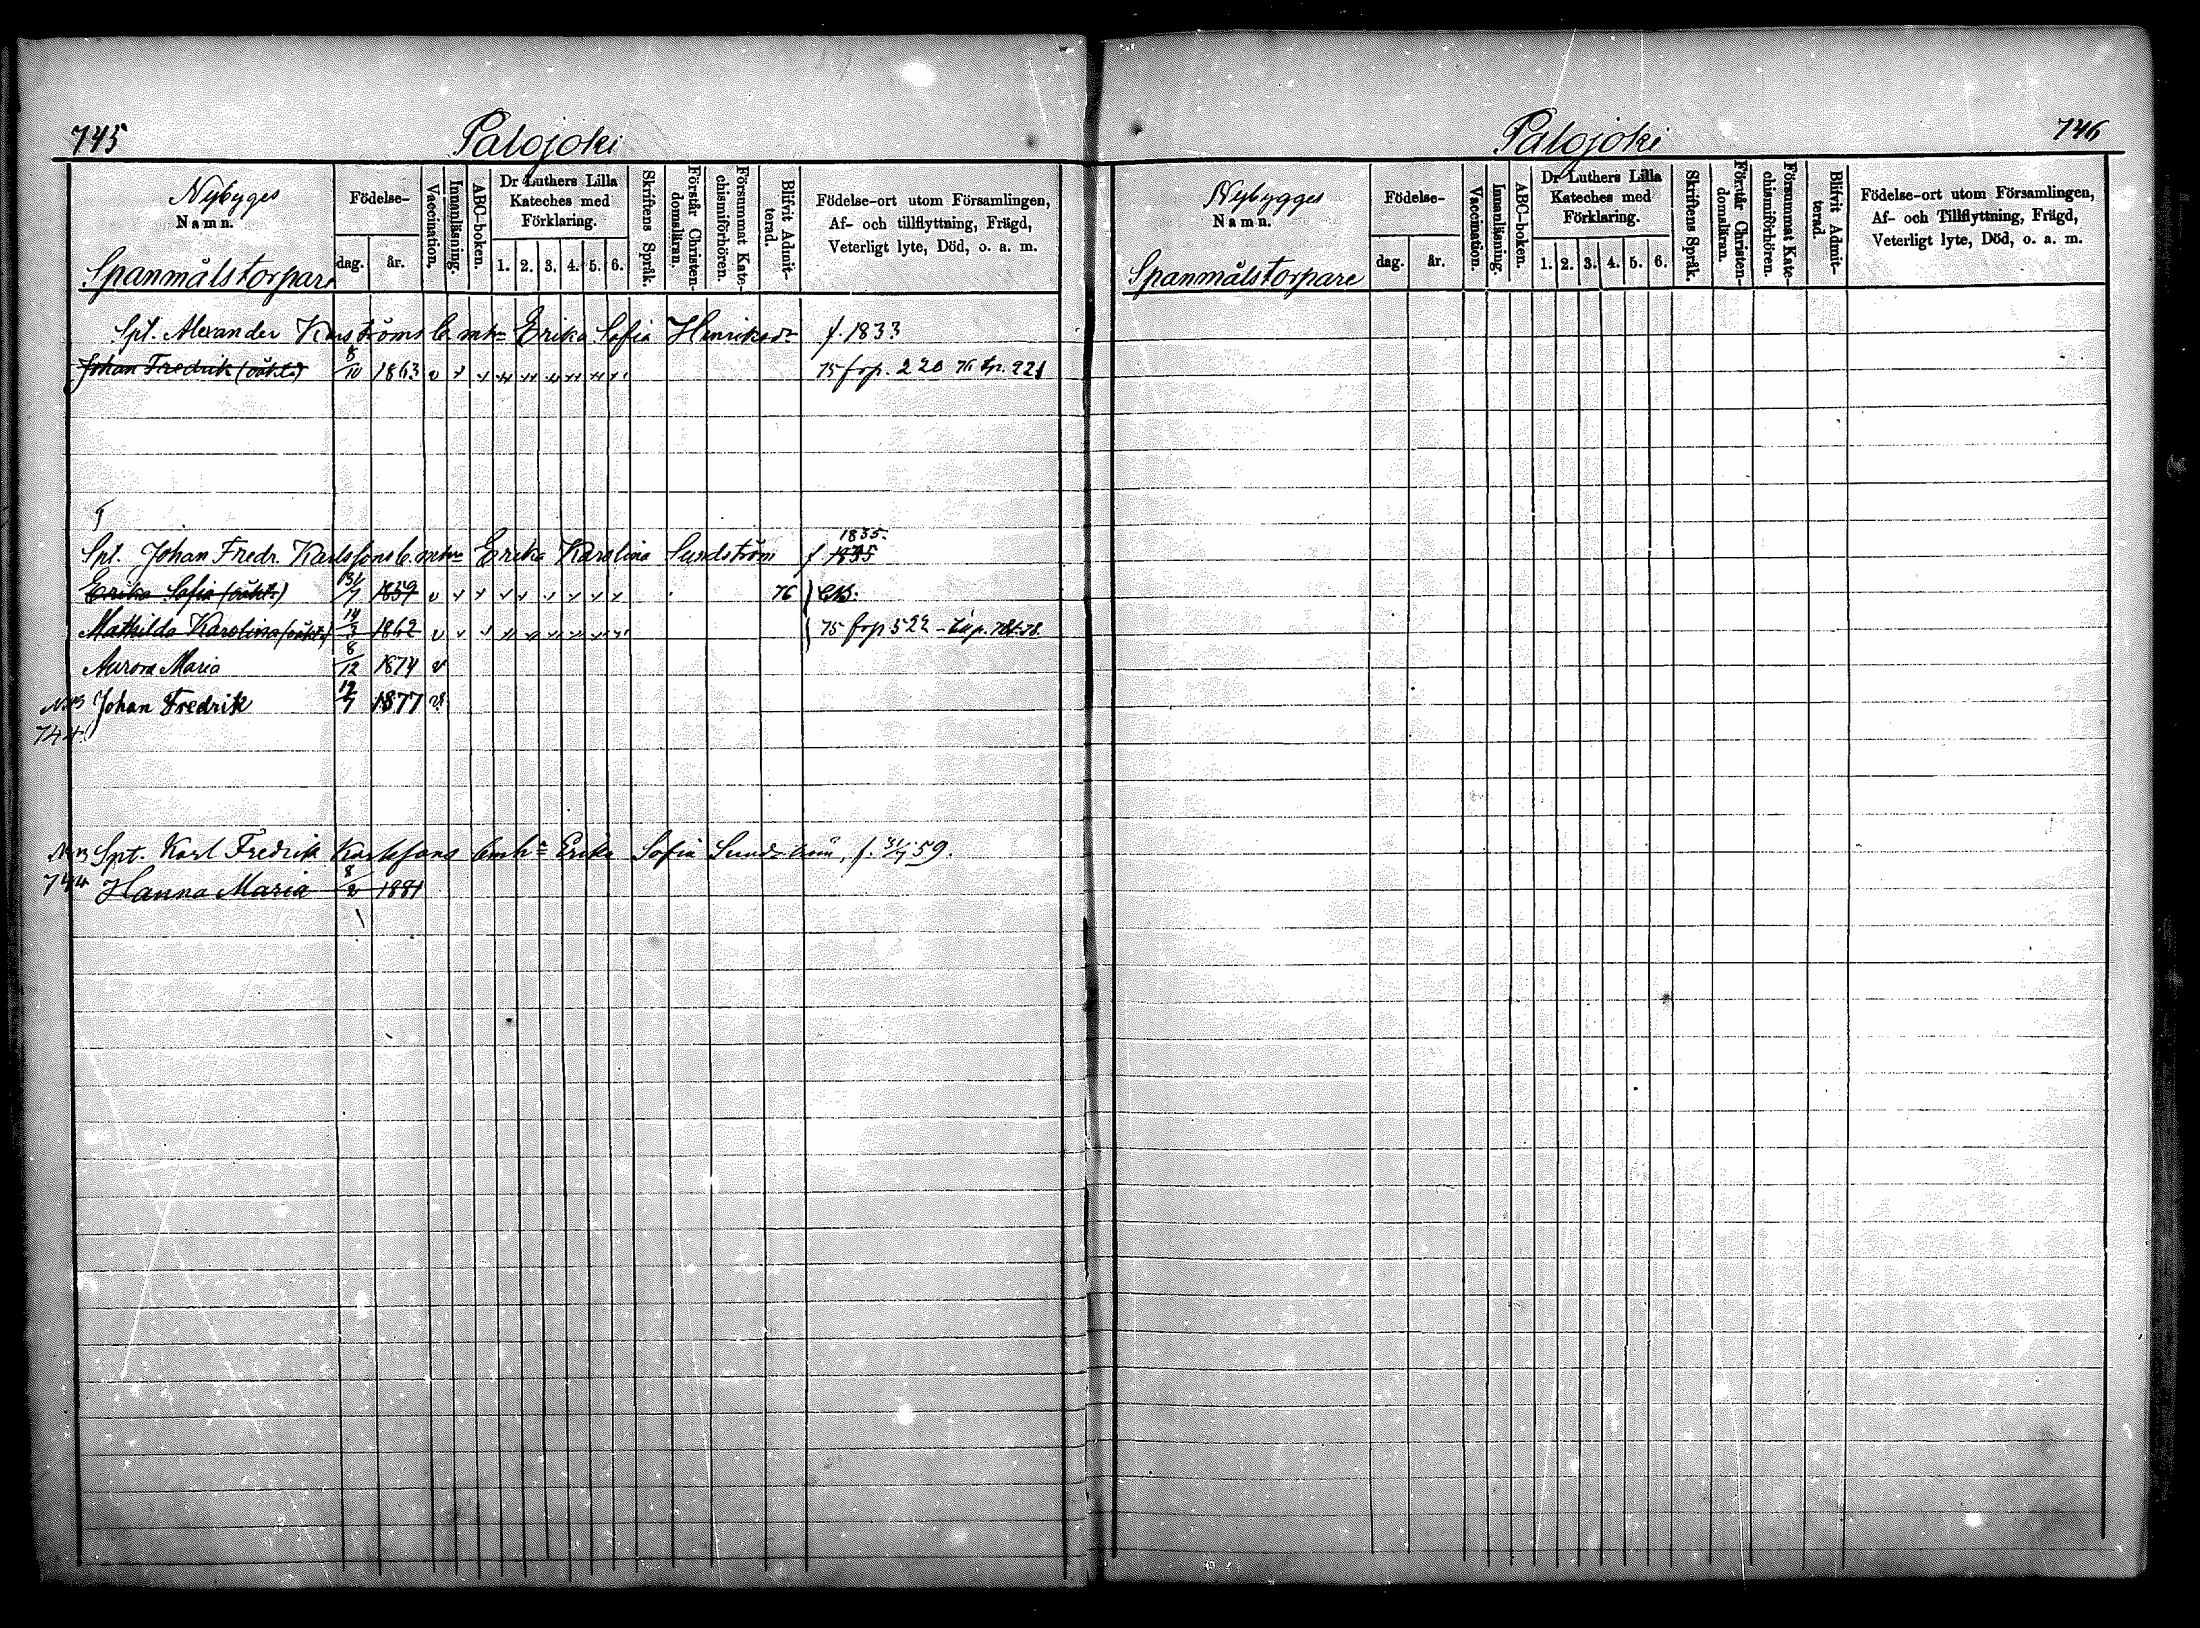 745
Palojoki
Nybygges
Namn.
Spanmålstorpare
Födelse-
dag.
år.
Vaccination.
Innanläsning.
ABC-boken.
Dr Luthers Lilla
Kateches med
Förklaring.
1. 2. 3. 4. 5. 6.
Skriftens Språk.
Förstår Christen-
domsläran.
Försummat Kate-
chismiförhören.
Blifvit Admit-
terad.
Födelse-ort utom Församlingen,
Af- och tillflyttning, Frägd,
Veterligt lyte, Död, o. a. m.
Spt. Alexander Karströms Erika Sofia Henriksdr f. 1833
Johan Fredrik (oäkt.) 8/10 1863 75 frp. 220 76 tp. 221
1835.
Spt. Johan Fredr. Karlssons Erika Karolina Sundström f 1835
Erika Sofia (oäkt.) 31/7 1859 76
Mathilda Karolina (oäkt.) 14/3 1862 75 frp 522
Aurora Maria 8/12 1874
Johan Fredrik 19/7 1877
744.
Spt. Karl Fredrik Karlssons Erika Sofia f. 31/7 59.
744 Hanna Maria 8/2 1881
746
Palojoki
Nybygges
Namn.
Spanmålstorpare
Födelse-
dag.
år.
Vaccination.
Innanläsning.
ABC-boken.
Dr Luthers Lilla
Kateches med
Förklaring.
1. 2. 3. 4. 5. 6.
Skriftens Språk.
Förstår Christen-
domsläran.
Försummat Kate-
chismiförhören.
Blifvit Admit-
terad.
Födelse-ort utom Församlingen,
Af- och Tillflyttning, Frägd,
Veterligt lyte, Död, o. a. m.